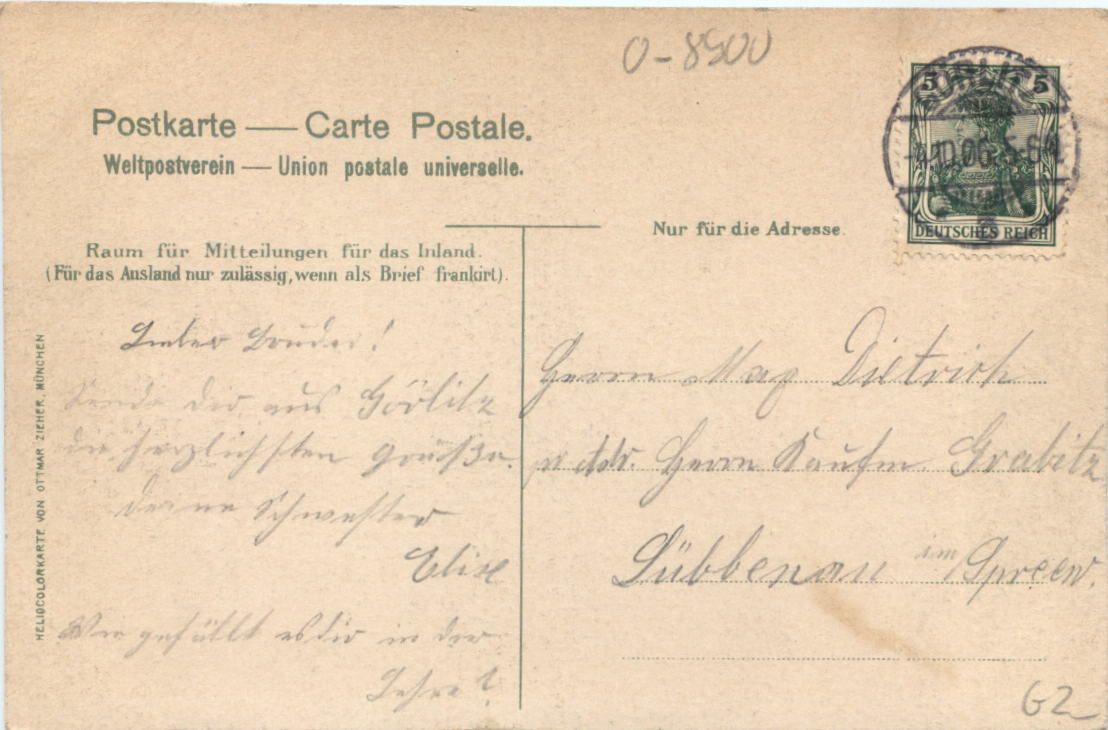 O-8900
Postkarte — Carte Postale.
Weltpostverein — Union postale universelle.
Nur für die Adresse.
Raum für Mitteilungen für das Inland.
(Für das Ausland nur zulässig, wenn als Brief frankirt).
5 5
GÖRLITZ
4.10.06. 5-6N.
DEUTSCHES REICH
HELIOCOLORKARTE VON OTTMAR ZIEHER, MÜNCHEN
Lieber Bruder!
Sende dir aus Görlitz
die herzlichsten Grüße.
deine Schwester
Elise
Wie gefällt es dir in der
Lehre?
Herrn Max Dietrich
p. Adr. Herrn Kaufm. Grabitz
Lübbenau im Spreew.
G2